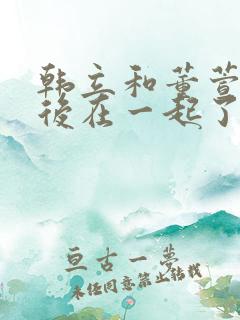 韩立和董萱
後在一起了
亘古一梦
未经同意禁止转载